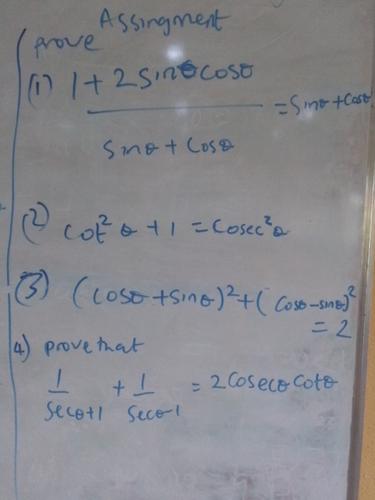 Assingment
prove
(1) 1 + 2 sinθ cosθ
= sinθ + cosθ
sinθ + cosθ
(2) cot² θ + 1 = cosec²θ
(3) (cosθ + sinθ)² + (cosθ - sinθ)²
= 2
4) prove that
1/secθ+1 + 1/secθ-1 = 2 cosecθ cotθ